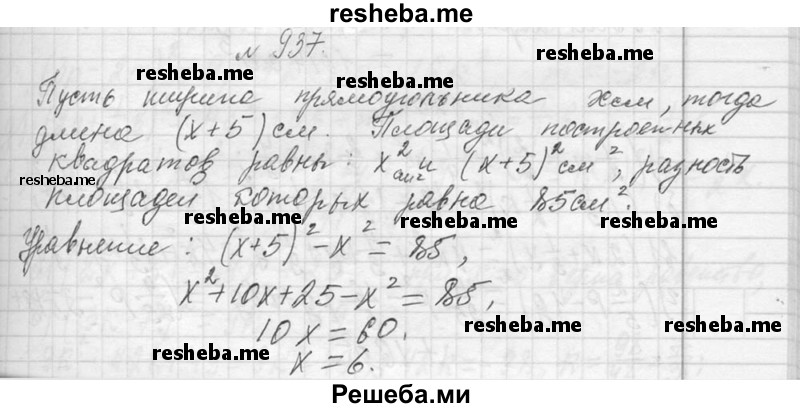 resheba.me
№ 937.
resheba.me resheba.me
Пусть ширина прямоугольника x см, тогда
resheba.me resheba.me
длина (x+5) см. Площади построенных
квадратов равны: x² см² и (x+5)² см², разность
resheba.me resheba.me
площадей которых равна 85 см².
resheba.me resheba.me
Уравнение: (x+5)² - x² = 85,
x² + 10x + 25 - x² = 85,
resheba.me resheba.me
10x = 60.
resheba.me resheba.me
x = 6.
Решеба.ми